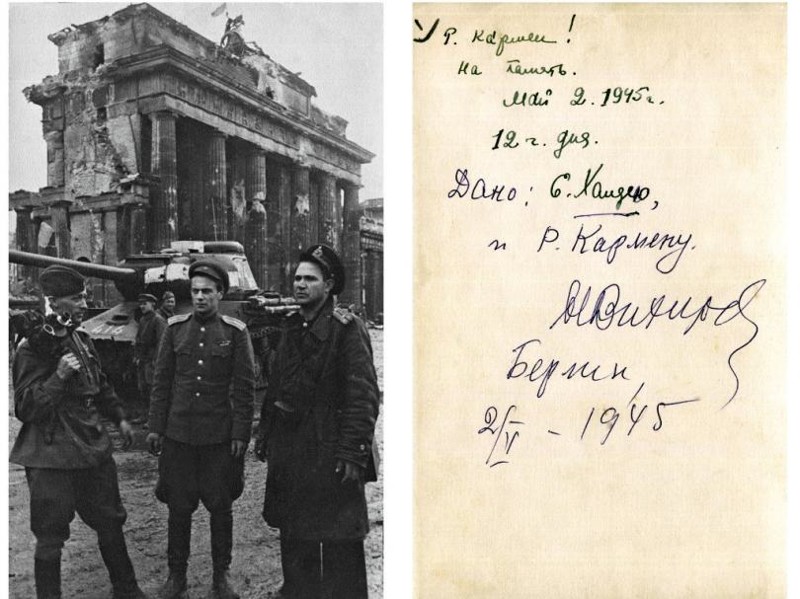 Р. Кармен!
на память.
Май 2. 1945 г.
12 ч. дня.
Дано: Е. Халдею,
и Р. Кармену.
Берлин,
2/V - 1945